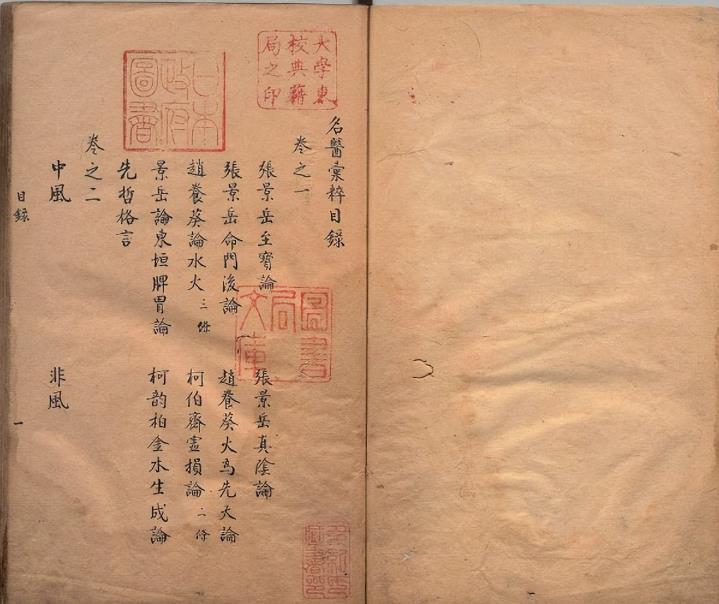 大學東校典籍局之印
日本政府圖書
名醫彙粹目錄
卷之一
張景岳至寶論　張景岳真陰論
張景岳命門後論　趙養葵火為先天論
趙養葵論水火三條　柯伯齋虛損論二條
景岳論東垣脾胃論　柯韵柏金水生成論
先哲格言
卷之二
中風　非風
目錄　一
圖書局文庫